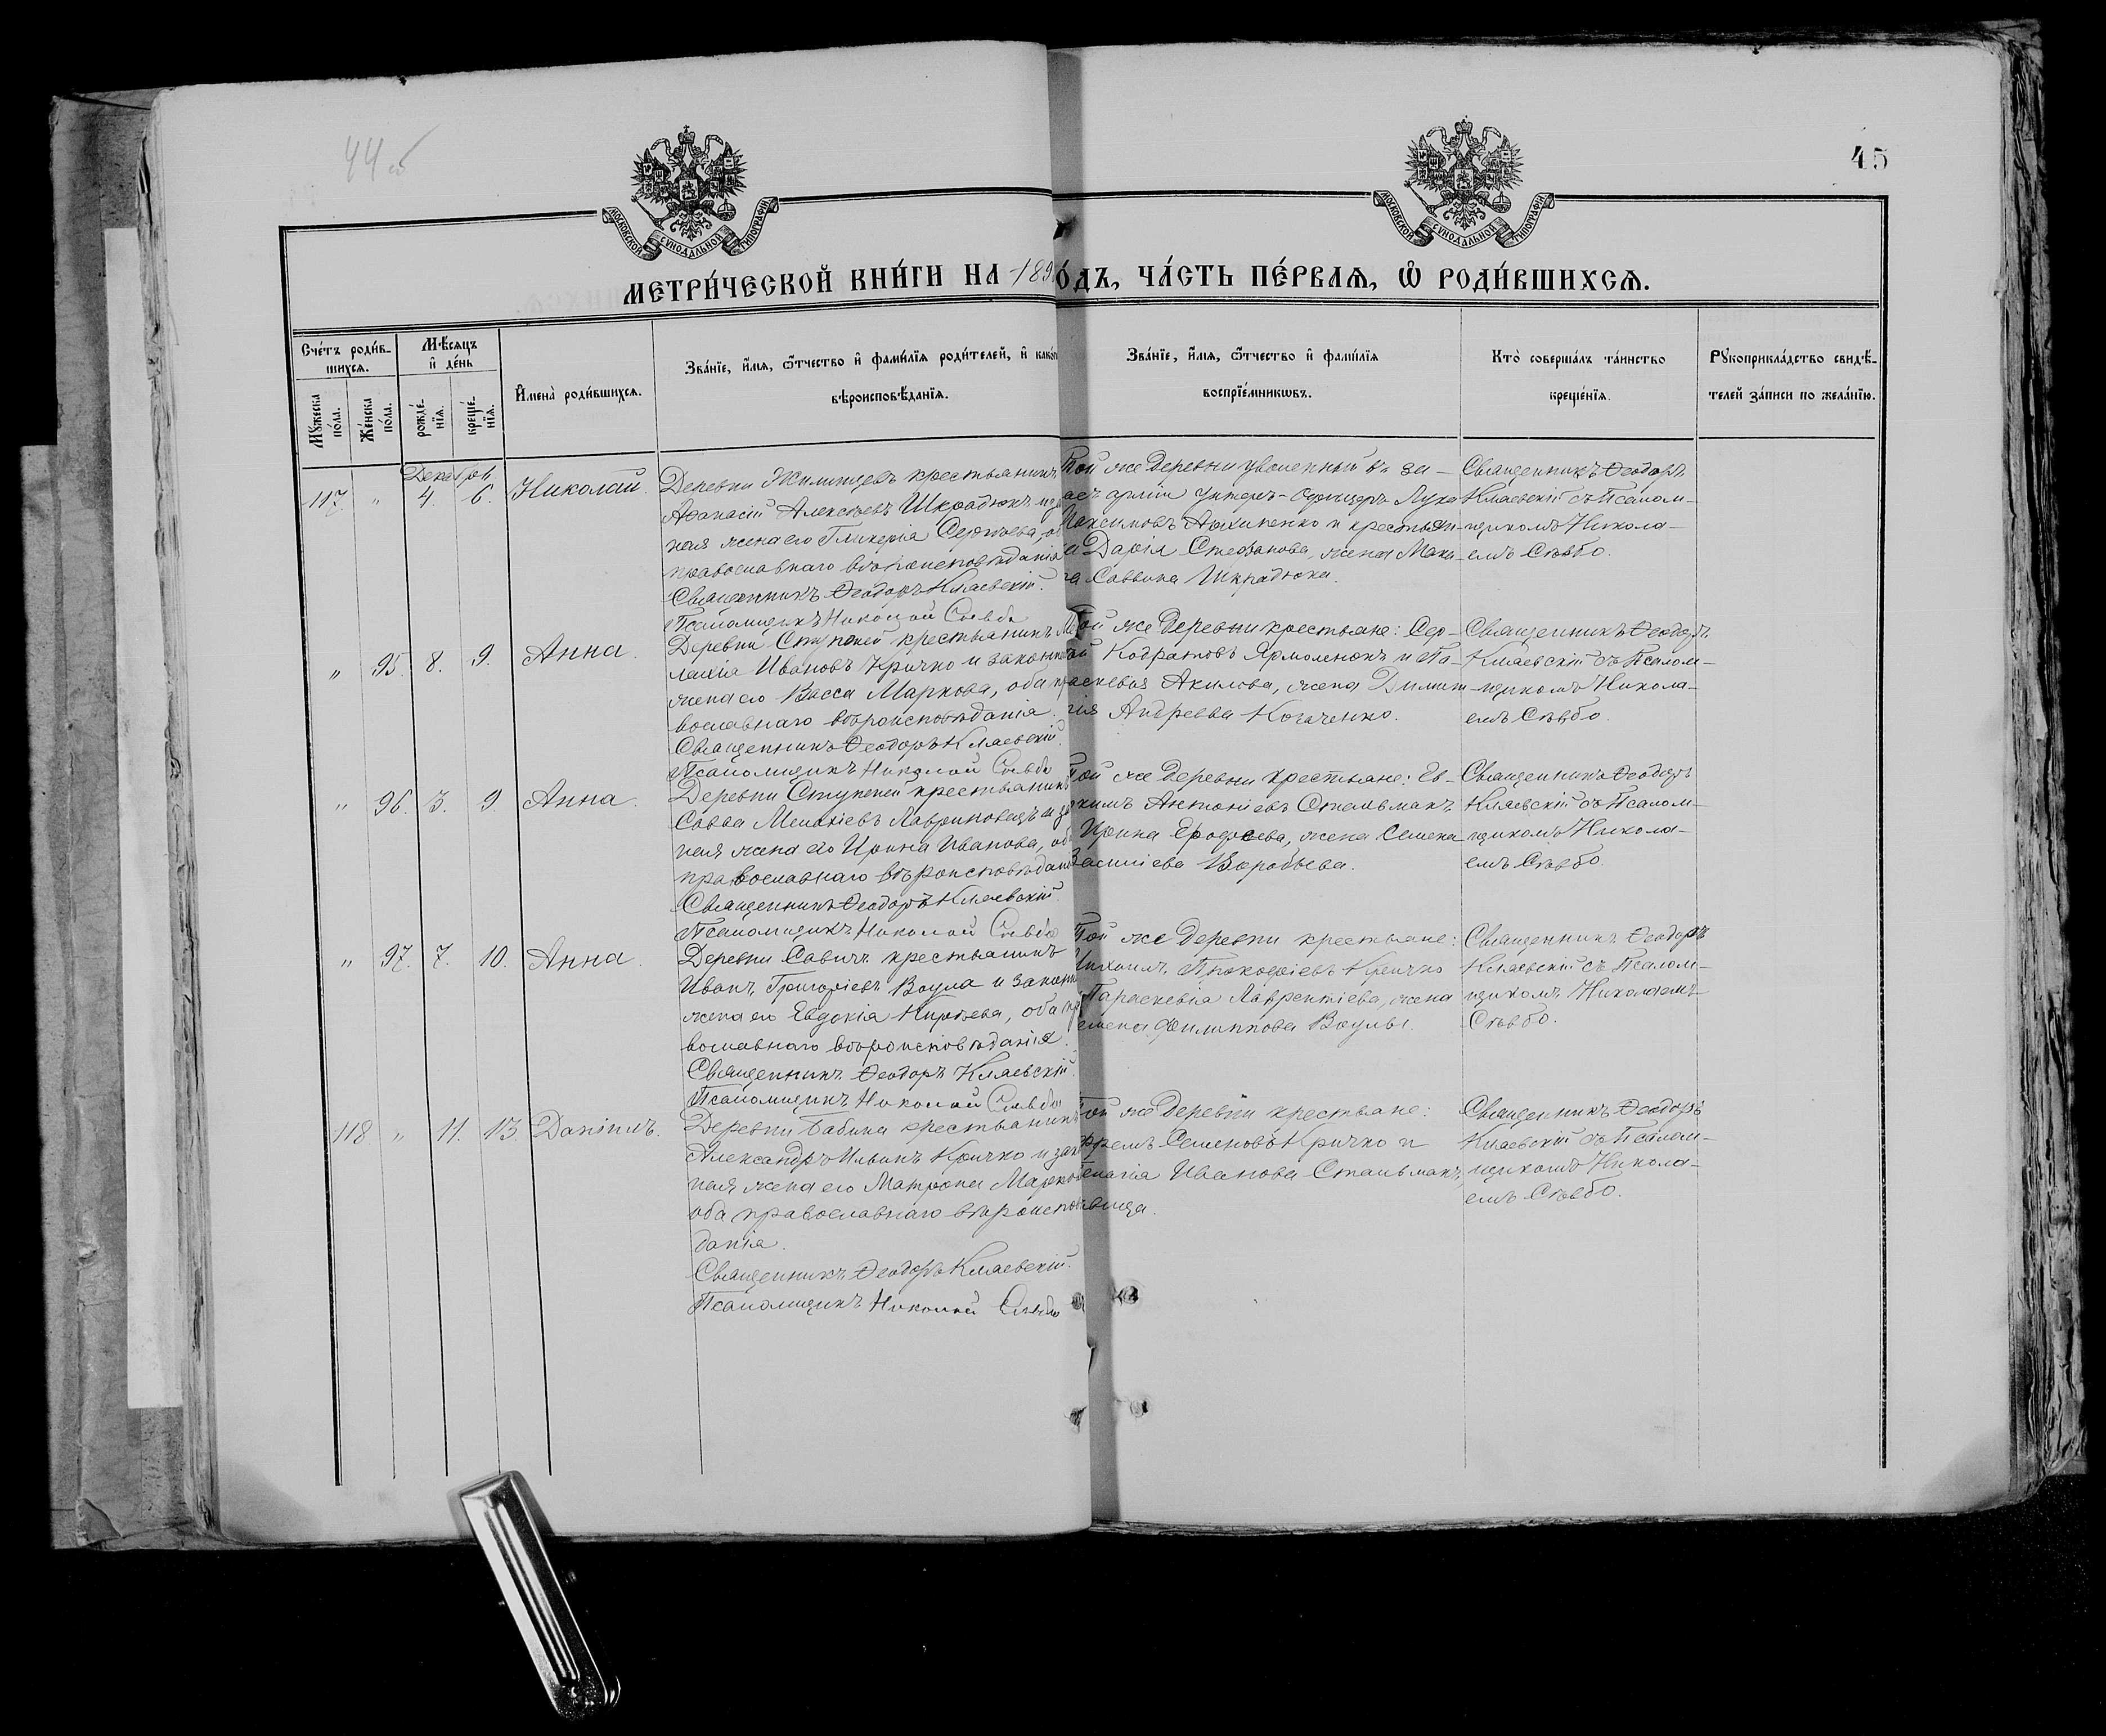 44об
45
МОСКОВСКОЙ СѴНОДАЛЬНОЙ ТИПОГРАФІИ
МОСКОВСКОЙ СѴНОДАЛЬНОЙ ТИПОГРАФІИ
МЕТРИ́ЧЕСКОЙ КНИ́ГИ НА 189
О́ДЪ, ЧА́СТЬ ПЕ́РВАѦ, Ѽ РОДИ́ВШИХСѦ.
Сче́тъ роди́в-
шихсѧ.
Мꙋ́жеска по́ла.
Же́нска по́ла.
Мѣ́сѧцъ и҆ де́нь
рожде́-
нїѧ.
креще́-
нїѧ.
И҆мена̀ роди́вшихсѧ.
Зва́нїе, и҆́мѧ, ѻ҆́тчество и҆ фами́лїѧ роди́телей, и҆ како́г
вѣроисповѣ́данїѧ.
Зва́нїе, и҆́мѧ, ѻ҆́тчество и҆ фами́лїѧ
воспрїе́мникѡвъ.
Кто̀ соверша́лъ та́инство
креще́нїѧ.
Рꙋкоприкла́дство свидѣ́-
телей за́писи по жела́нїю.
Декабрь
117. " 4. 6. Николай.
Деревни Жилитцевъ крестьянинъ
Аѳанасій Алексѣевъ Шкрадюкъ и
ная жена его Гликерія Сергѣева,
православнаго вѣроисповѣданія
Священникъ Ѳеодоръ Кляевскій.
Псаломщикъ Николай Сѣвбо
Той же деревни уволенный въ за-
асъ арміи унтеръ-офицеръ Лука
Максимовъ Анхипенко и крестьян-
ка Дарія Стефанова, жена Мак
Саввина Шкрадюка.
Священникъ Ѳеодоръ
Кляевскій съ Псалом-
щикомъ Никола-
емъ Сѣвбо.
" 95. 8. 9. Анна.
Деревни Ступеней крестьянинъ
Ивановъ Кричко и законная
жена его Васса Маркова, оба
вославнаго вѣроисповѣданія.
Священникъ Ѳеодоръ Кляевскій.
Псаломщикъ Николай Сѣвбо
Той же деревни крестьяне: Сер-
гій Кодратовъ Ярмоленокъ и Па-
раскевія Акилова, жена Димит-
рія Андреева Кочаченко.
Священникъ Ѳеодоръ
Кляевскій съ Псалом-
щикомъ Никола-
емъ Сѣвбо.
" 96. 3. 9 Анна.
Деревни Ступеней крестьянинъ
Савва Мелахіевъ Лавриновецъ и
ная жена его Ирина Иванова,
православнаго вѣроисповѣданія
Священникъ Ѳеодоръ Кляевскій.
Псаломщикъ Николай Сѣвбо
Той же деревни крестьяне: Ев-
кимъ Антоніевъ Стельмахъ
Ирина Ерофеева, жена Семена
Василіева Воробьева.
Священникъ Ѳеодоръ
Кляевскій съ Псалом-
щикомъ Никола-
емъ Сѣвбо.
" 97. 7. 10. Анна.
Деревни Савичъ крестьянинъ
Иванъ Григоріевъ Воула и законная
жена его Евдокія Кирѣева, оба
вославнаго вѣроисповѣданія.
Священникъ Ѳеодоръ Кляевскій.
Псаломщикъ Николай Сѣвбо
Той же деревни крестьяне:
Прокофіевъ Кричко
Параскевія Лаврентіева, жена
Семена Филиппова Воулы.
Священникъ Ѳеодоръ
Кляевскій съ Псалом-
щикомъ Николаемъ
Сѣвбо.
118 " 11. 13. Даніилъ.
Деревни Бабина крестьянинъ
Александръ Ильинъ Кричко и
ная жена его Матрона
оба православнаго вѣроисповѣ
данія.
Священникъ Ѳеодоръ Кляевскій.
Псаломщикъ Николай Сѣвбо
Той же деревни крестьяне:
Ефремъ Семеновъ Кричко и
Пелагія Иванова Стельмахъ,
Священникъ Ѳеодоръ
Кляевскій съ Псалом-
щикомъ Никола-
емъ Сѣвбо.